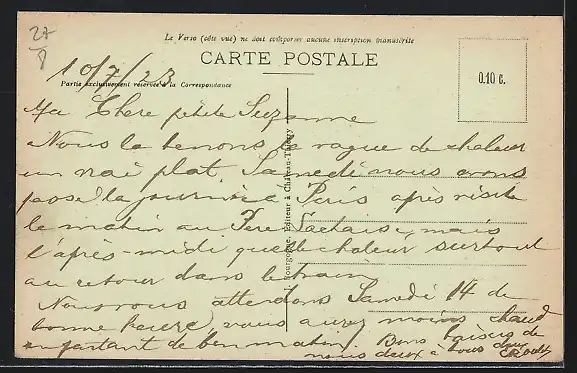 27
8
Le Verso (côté vue) ne doit comporter aucune inscription manuscrite
CARTE POSTALE
0.10 c.
10/7/23
Partie exclusivement réservée à la Correspondance
Ma Chere petite Suzanne
Nous la tenons la vague de chaleur
un vrai plat. Samedi nous avons
passé la journée à Paris après visite
le matin au Père Lachaise, mais
l'après-midi quelle chaleur surtout
au retour dans le train
Nous vous attendons Samedi 14 de
bonne heure, vous aurez moins chaud
en partant de bon matin. Bons baisers de
nous deux à vous deux
Bourgogne, Editeur à Château-Thierry